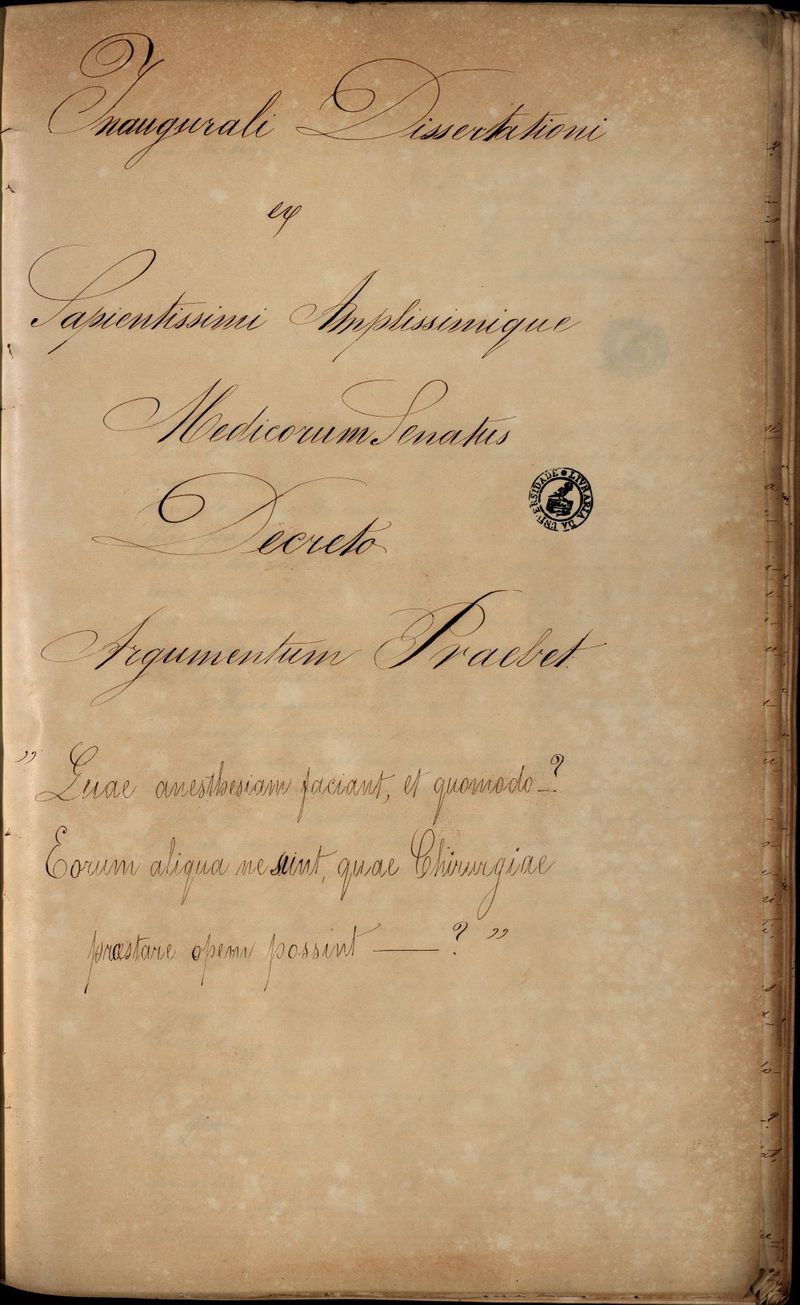 Inaugurali Dissertationi
ex
Sapientissimi Amplissimique
Medicorum Senatus
LIVRARIA DA UNIVERSIDADE
Decreto
Argumentum Praebet.
„ Quae anesthesiam faciant, et quomodo—?
Eorum aliqua ne sint, quae Chirurgiae
præstare opem possint —— ? „